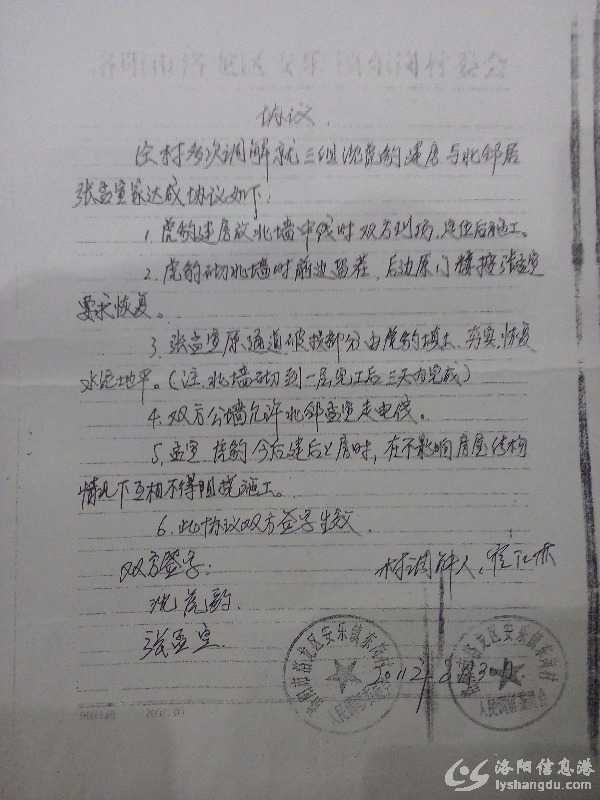 协议
经村多次调解就三组沈虎豹建房与北邻居
张孟宣家达成协议如下:
1.虎豹建房放北墙中线时双方到场,定位后施工。
2.虎豹砌北墙时前边留茬,后边原门楼按张孟宣
要求恢复。
3.张孟宣原通道破损部分由虎豹填土、夯实、恢复
水泥地平。(注:北墙砌到一层完工后三天内完成)
4.双方公墙允许北邻孟宣走电线。
5.孟宣、虎豹今后建后上房时,在不影响房屋结构
情况下互相不得阻挠施工。
6.此协议双方签字生效
双方签字:
村调解人:
沈虎豹
张孟宣
洛阳市洛龙区安乐镇东岗村
人民调解委员会
洛阳市洛龙区安乐镇东岗村
人民调解委员会
洛阳信息港
lyshangdu.com